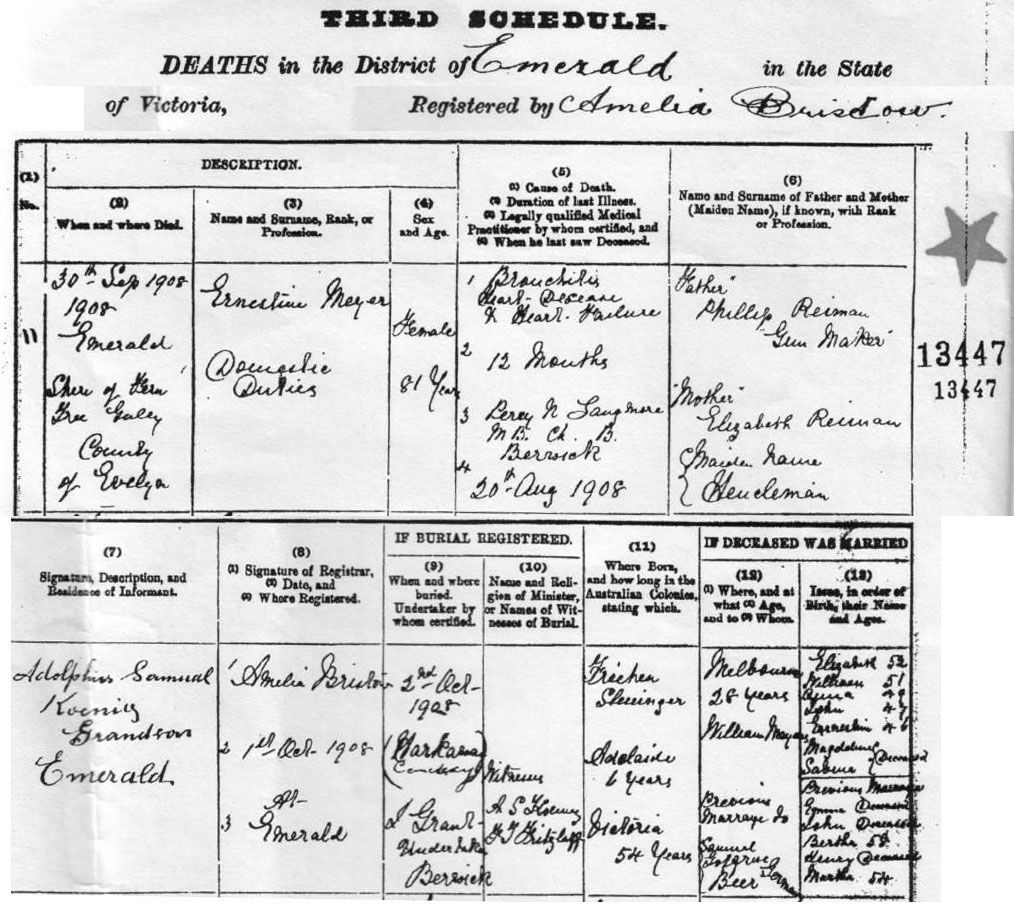 THIRD SCHEDULE.
DEATHS in the District of Emerald in the State
of Victoria, Registered by Amelia Bristow.
DESCRIPTION.
(1)
No.
(2)
When and where Died.
(3)
Name and Surname, Rank, or
Profession.
(4)
Sex
and Age.
(5)
(1) Cause of Death.
(2) Duration of last Illness.
(3) Legally qualified Medical
Practitioner by whom certified, and
(4) When he last saw Deceased.
(6)
Name and Surname of Father and Mother
(Maiden Name), if known, with Rank
or Profession.
11
30th Sep 1908
1908
Emerald
Shire of Fern
Tree Gully
County
of Evelyn
Ernestine Meyer
Domestic
Duties
Female
81 Years
1 Bronchitis
Heart Disease
& Heart Failure
2 12 Months
3 Percy N Langmore
M.B. Ch. B.
Berwick
4 20th Aug 1908
"Father"
Phillip Reiman
Gun Maker
"Mother"
Elizabeth Reiman
Maiden Name
Heucleman
13447
13447
(7)
Signature, Description, and
Residence of Informant.
(8)
(1) Signature of Registrar,
(2) Date, and
(3) Where Registered.
IF BURIAL REGISTERED.
(9)
When and where
buried.
Undertaker by
whom certified.
(10)
Name and Reli-
gion of Minister,
or Names of Wit-
nesses of Burial.
(11)
Where Born,
and how long in the
Australian Colonies,
stating which.
IF DECEASED WAS MARRIED
(12)
(1) Where, and at
what (2) Age,
and to (3) Whom.
(13)
Issue, in order of
Birth, their Names
and Ages.
Adolphus Samual
Koenig
Grandson
Emerald
1 Amelia Bristow
2 1st Oct 1908
At
3 Emerald
2nd Oct
1908
Cemetery
J Grant
Undertaker
Berwick
Witness
A S Koenig
Adelaide
6 Years
Victoria
54 Years
Melbourne
28 Years
William Meyer
Previous
Marraye to
Samuel
Beer
Elizabeth 52
William 51
49
John 47
Ernestin 46
Deceased
Previous Marraye
Emma Deceased
John Deceased
Bertha 58
Henry Deceased
Martha 54